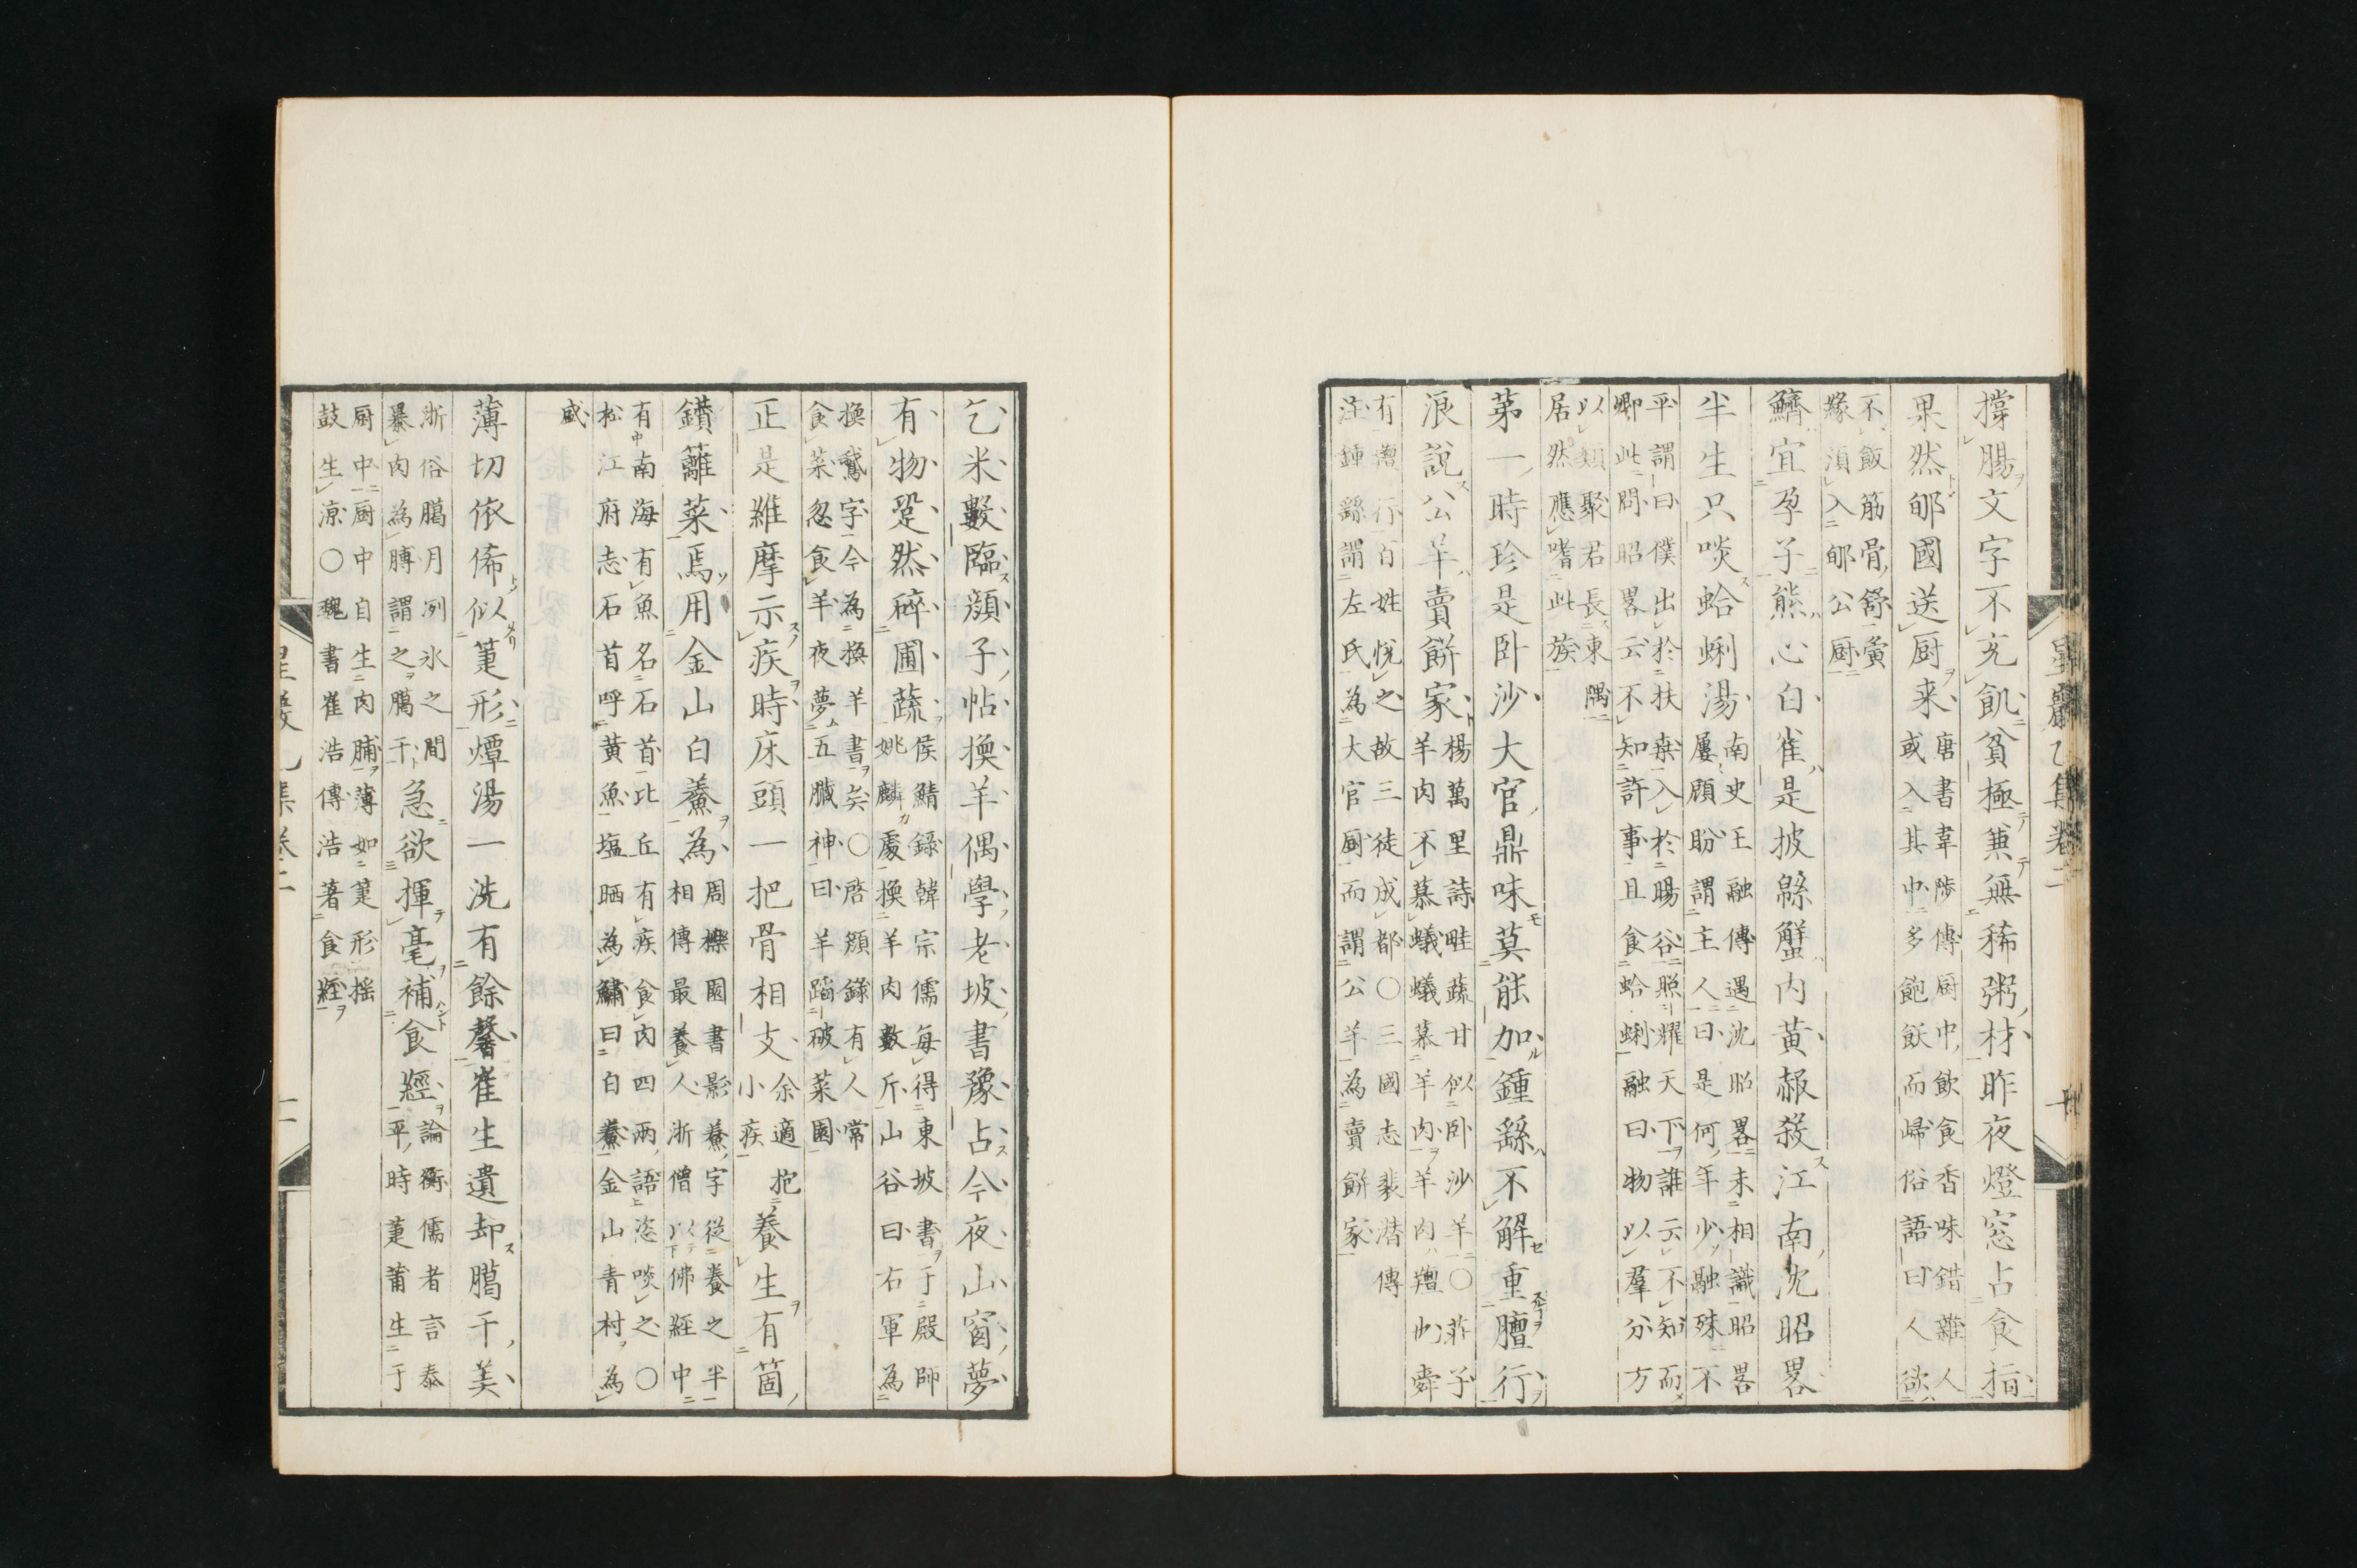 星巖乙集卷二
撐腸文字不充飢貧極兼無稀粥材昨夜燈窓占食指
果然郇國送厨来
唐書韋陟傳厨中飲食香味錯雜人
或入其中多飽飫而歸俗語曰人欲
不飯筋骨舒夤
緣須入郇公厨
鱭宜孕子熊心白雀是披緜蟹内黄赧殺江南沈昭畧
半生只啖蛤蜊湯
南史王融傳遇沈昭畧未相識昭畧
屢顧盼謂主人曰是何年少融殊不
平謂曰僕出於扶桒入於暘谷照耀天下誰云不知而
卿此問昭畧云不知許事且食蛤蜊融曰物以羣分方
以類聚君長東隅
居然應嗜此族
第一時珍是卧沙大官鼎味莫能加鍾繇不解重膻行
浪說公羊賣餅家
楊萬里詩畦蔬甘似卧沙羊〇莊子
羊肉不慕蟻蟻慕羊肉羊肉羶也舜
有羶行百姓悅之故三徒成都〇三國志裴潛傳
注鍾繇謂左氏為大官厨而謂公羊為賣餅家
乞米數臨顔子帖換羊偶學老坡書豫占今夜山窗夢
有物跫然碎圃蔬
侯鯖錄韓宗儒每得東坡書于殿帥
姚麟處換羊肉數斤山谷曰右軍為
換鵞字今為換羊書矣〇啓顔錄有人常
食菜忽食羊夜夢五臟神曰羊踏破菜園
正是維摩示疾時床頭一把骨相支
余適抱
小疾
養生有箇
鑚籬菜焉用金山白鯗為
周櫟園書影鯗字從養之半
相傳最養人浙僧以佛經中
有南海有魚名石首比丘有疾食肉四兩語恣啖之〇
松江府志石首呼黄魚塩晒為鯗曰白鯗金山青村為
盛
薄切依俙似萐形燂湯一洗有餘馨崔生遺却臈干美
浙俗臈月冽氷之間
暴肉為膊謂之臈干
急欲揮毫補食經
論衡儒者言泰
平時萐莆生于
厨中厨中自生肉脯薄如萐形揺
鼓生凉〇魏書崔浩傳浩著食經